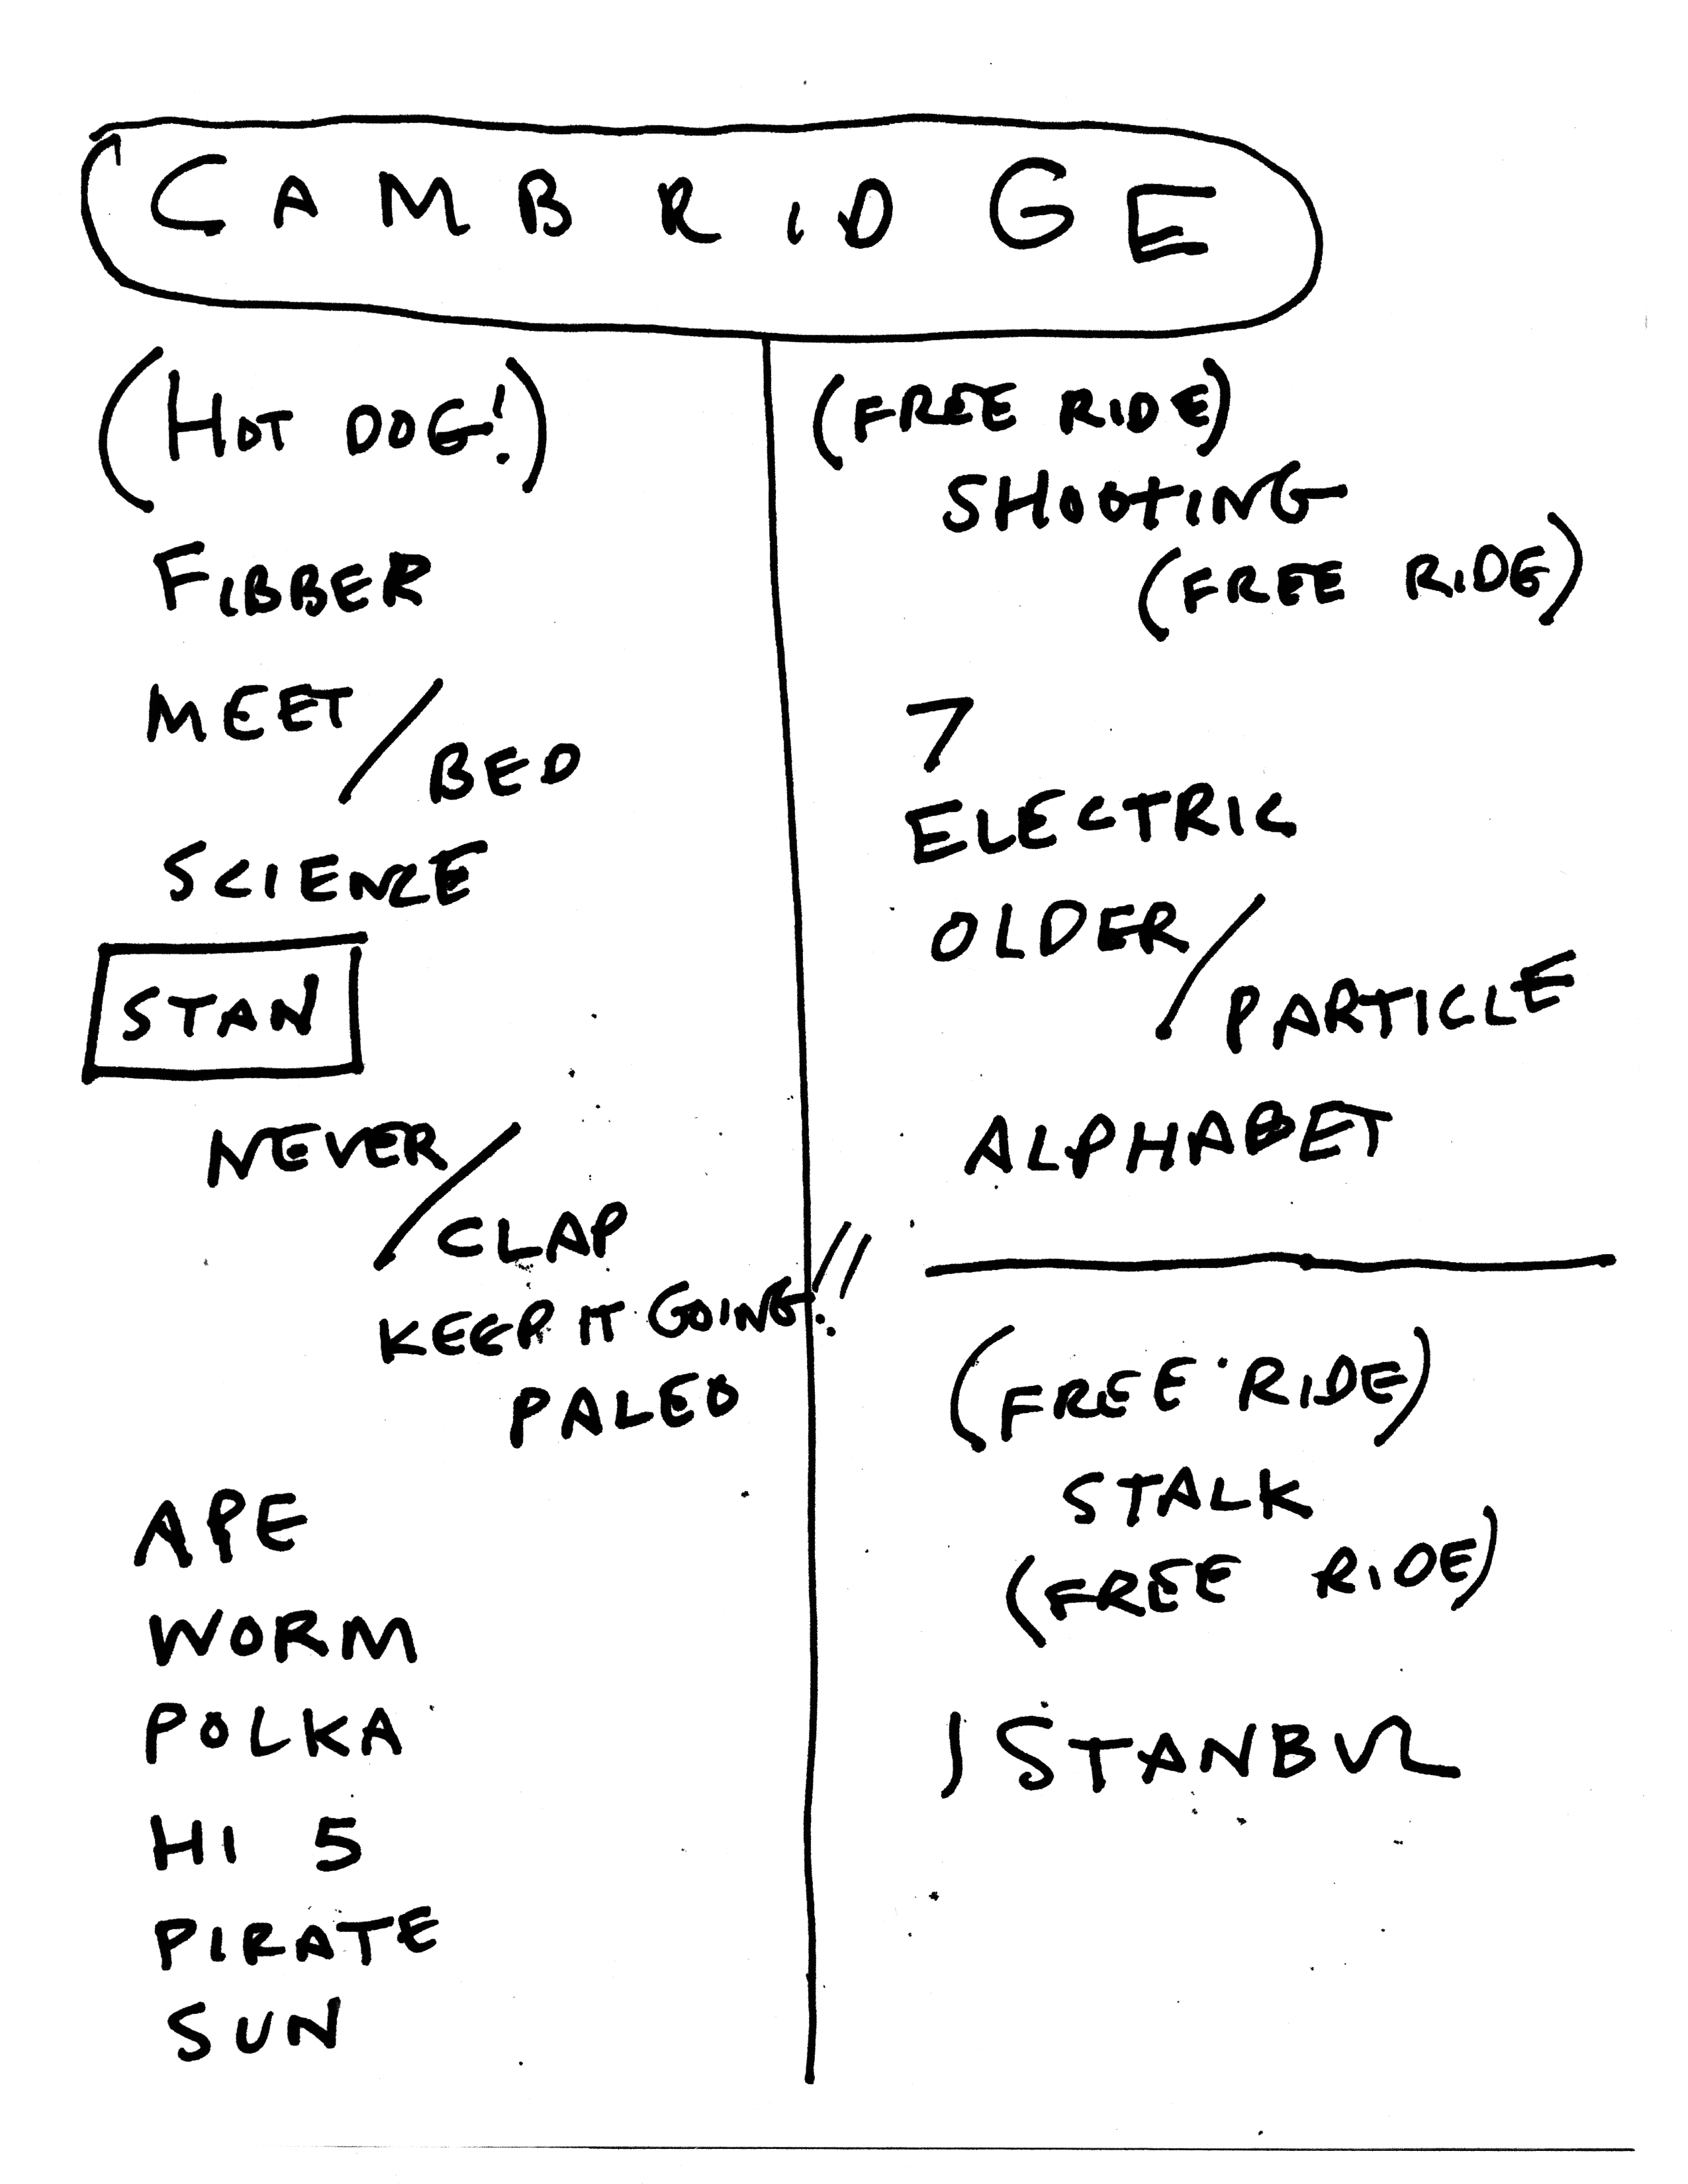 CAMBRIDGE
(HOT DOG!)
FIBBER
MEET/BED
SCIENCE
STAN
NEVER/CLAP
KEEP IT GOING!!
PALEO
APE
WORM
POLKA
HI 5
PIRATE
SUN
(FREE RIDE)
SHOOTING
(FREE RIDE)
7
ELECTRIC
OLDER/PARTICLE
ALPHABET
(FREE RIDE)
STALK
(FREE RIDE)
ISTANBUL